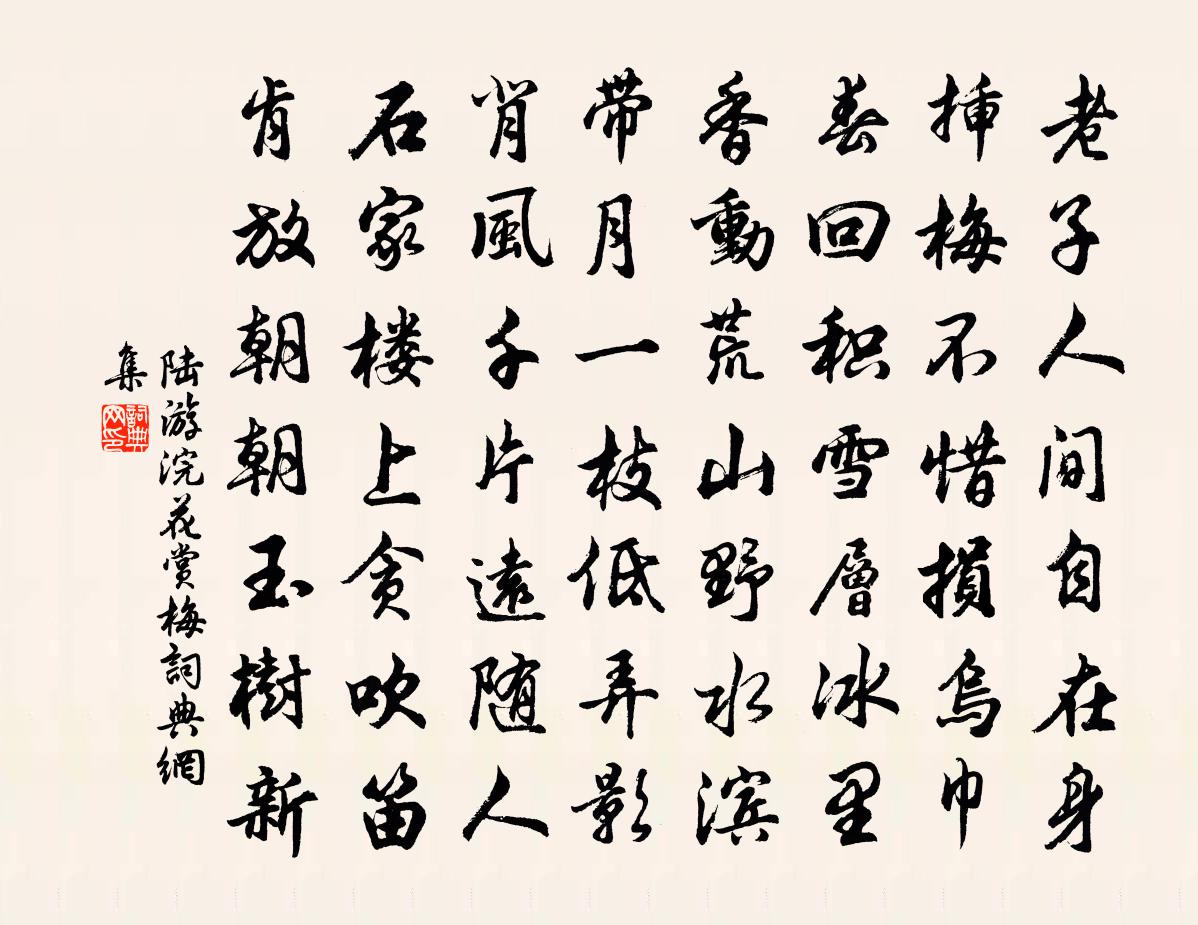 老子人间自在身
插梅不惜損烏巾
春回积雪層冰里
香動荒山野水滨
带月一枝低弄影
背風千片遠随人
石家楼上贪吹笛
肯放朝朝玉樹新
陆游浣花赏梅詞典網
集
詞典网印